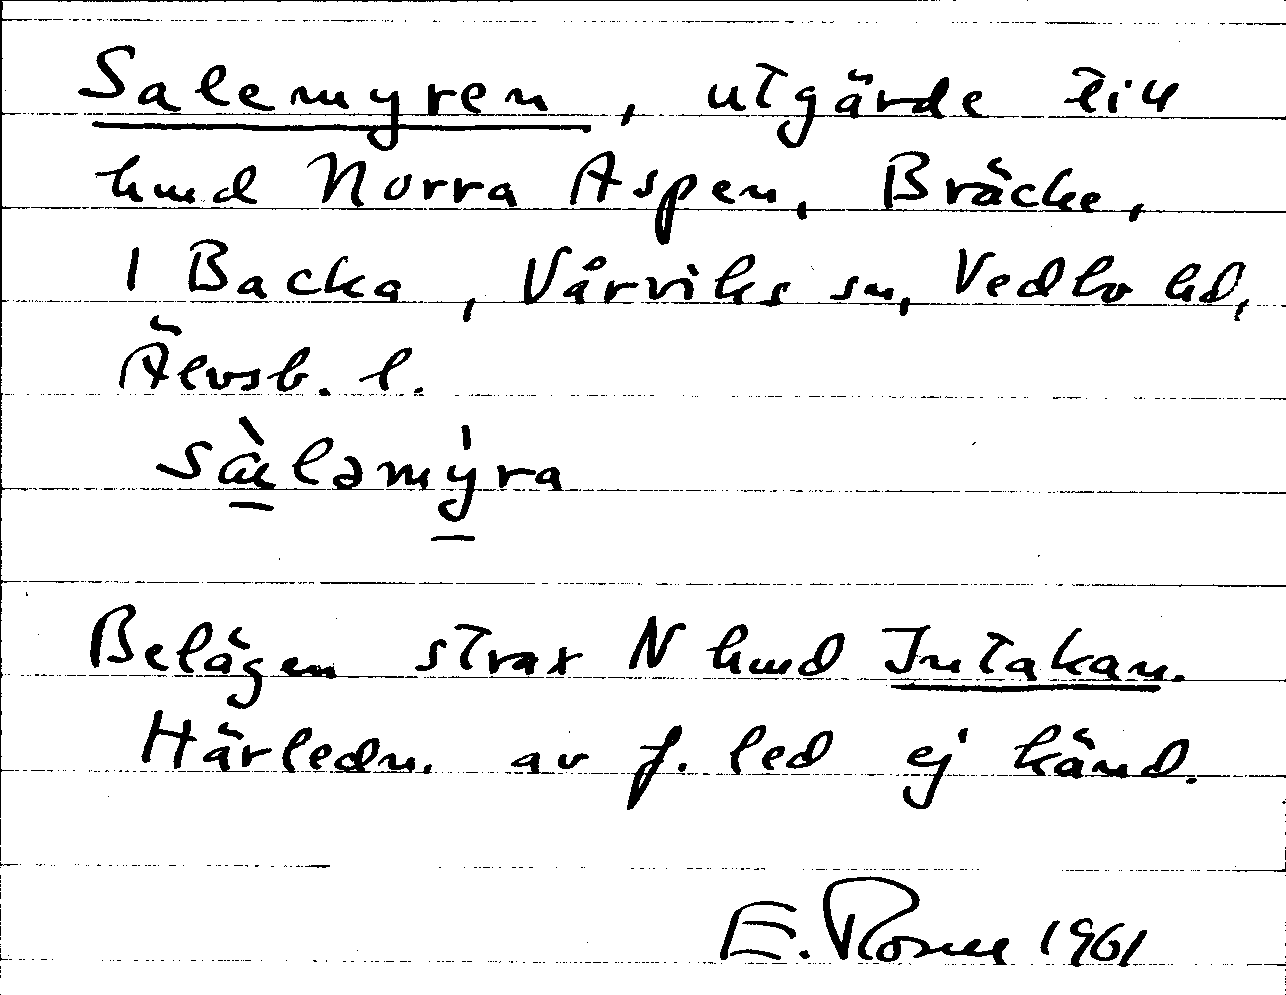 Salemyren, utgärde till
hmd Norra Aspen, Bräcke,
1 Backa, Vårviks sn, Vedbo hd,
Älvsb. l.
sàləmy̍ra
Belägen strax N hmd Intakan.
Härledn. av f. led ej känd.
E. Rosell 1961